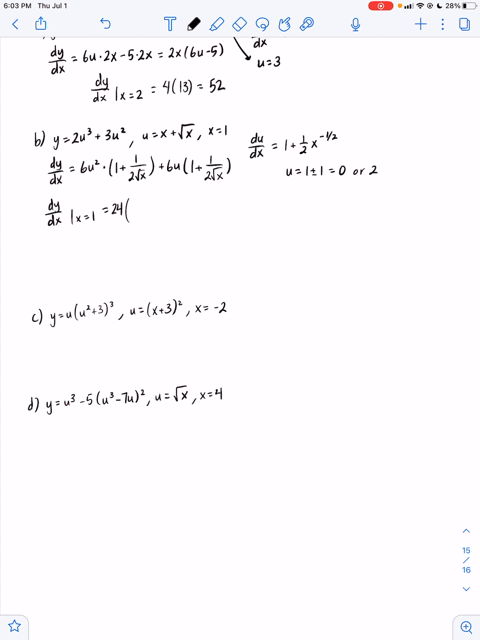 6:03 PM Thu Jul 1
28%
T
dy/dx = 6u·2x-5·2x = 2x(6u-5)
dx
u=3
dy/dx |x=2 = 4(13) = 52
b) y=2u³+3u², u=x+√x, x=1
du/dx = 1+½x^-1/2
dy/dx = 6u²·(1+1/2√x)+6u(1+1/2√x)
u=1±1=0 or 2
dy/dx |x=1 = 24(
c) y=u(u²+3)³, u=(x+3)², x=-2
d) y=u³-5(u³-7u)², u=√x, x=4
15
/
16